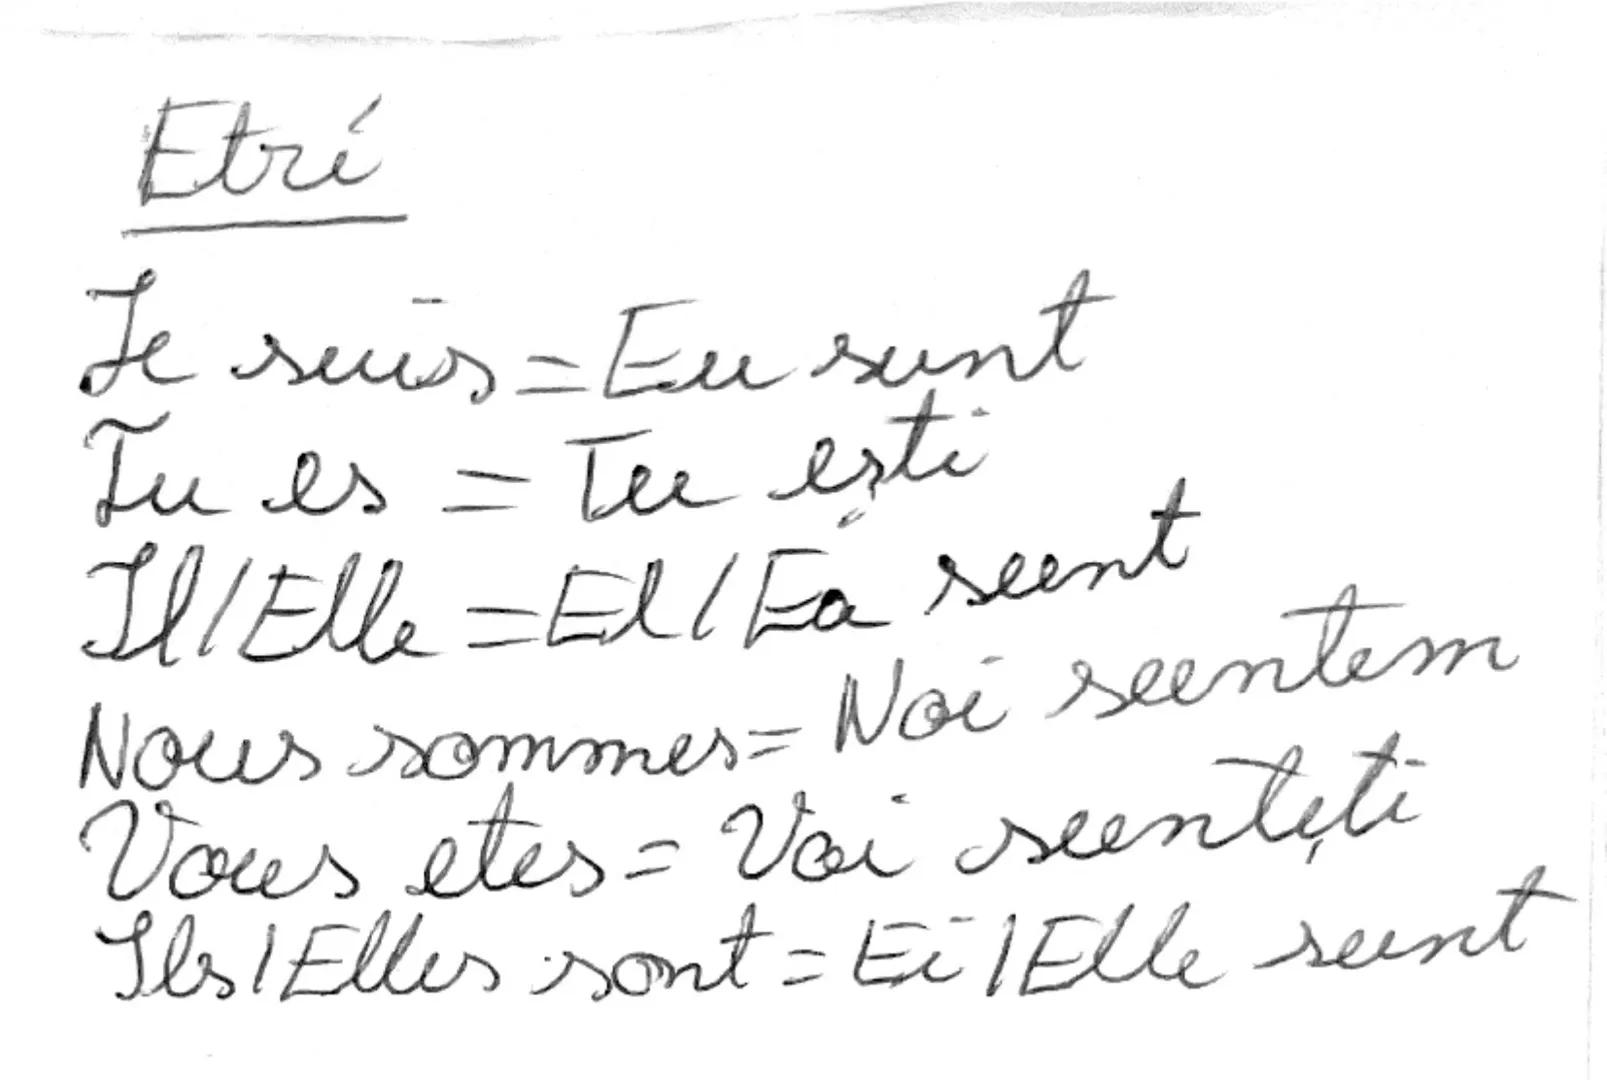 Etré
Je suis = Eu sunt
Tu es = Tu ești
Il/Elle = El/Ea sunt
Nous sommes = Noi suntem
Vous etes = Voi sunteți
Ils/Elles sont = Ei/Elle sunt